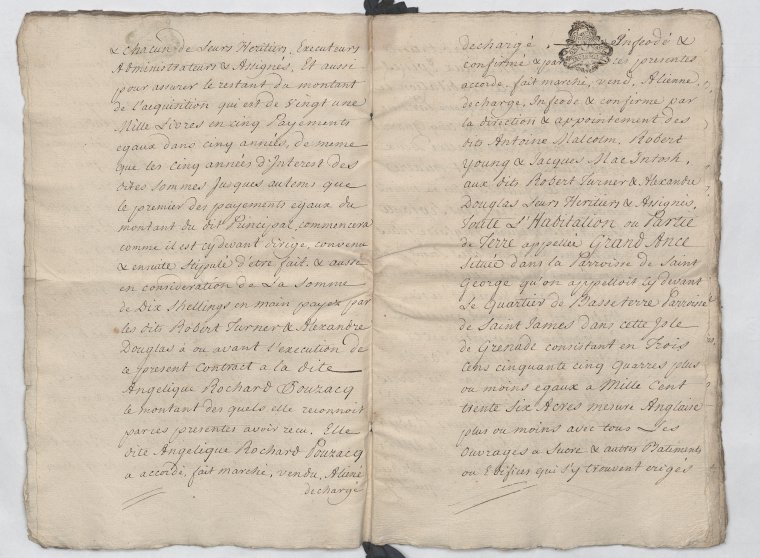 & chacun de Leurs Heritiers, Executeurs
Administrateurs & Assignés, Et aussi
pour assurer le restant du montant
de l'acquisition qui est de Vingt une
Mille Livres en cinq Payements
egaux dans cinq années, de meme
que les cinq années d'Interest des
dites sommes Jusques autems que
le premier des payements egaux du
montant du dit Principal commencera
comme il est cy devant dirigé, convenu
& ensuite Stipulé d'être fait. & aussi
en consideration de La Somme
de Dix Shellings en main payez par
les dits Robert Turner & Alexandre
Douglas à ou avant l'execution de
ce present Contract a la dite
Angelique Rochard Pouzacq
le montant des quels elle reconnoit
par ces presentes avoir recu. Elle
dite Angelique Rochard Pouzacq
a accordé, fait marché, vendu, Aliené
dechargé
dechargé, Infeodé &
confirmé & par ces presentes
accorde, fait marché, vend, Alienne
decharge, Infeode & confirme par
la direction & appointement des
dits Antoine Malcolm, Robert
Young & Jacques Mac Intosh,
aux dits Robert Turner & Alexandre
Douglas Leurs Heritiers & Assignés,
Toute L'Habitation ou Partie
de Terre appellée Grand Ance
située dans la Parroisse de Saint
George qu'on appelloit Cy devant
Le Quartier de Basseterre Parroisse
de Saint James dans cette Isle
de Grenade consistant en Trois
Cens cinquante cinq Quarres plus
ou moins egaux a Mille Cent
trente Six Acres mesure Anglaise
plus ou moins avec tous Les
Ouvrages a Sucre & autres Batiments
ou Edifices qui s'y trouvent erigés